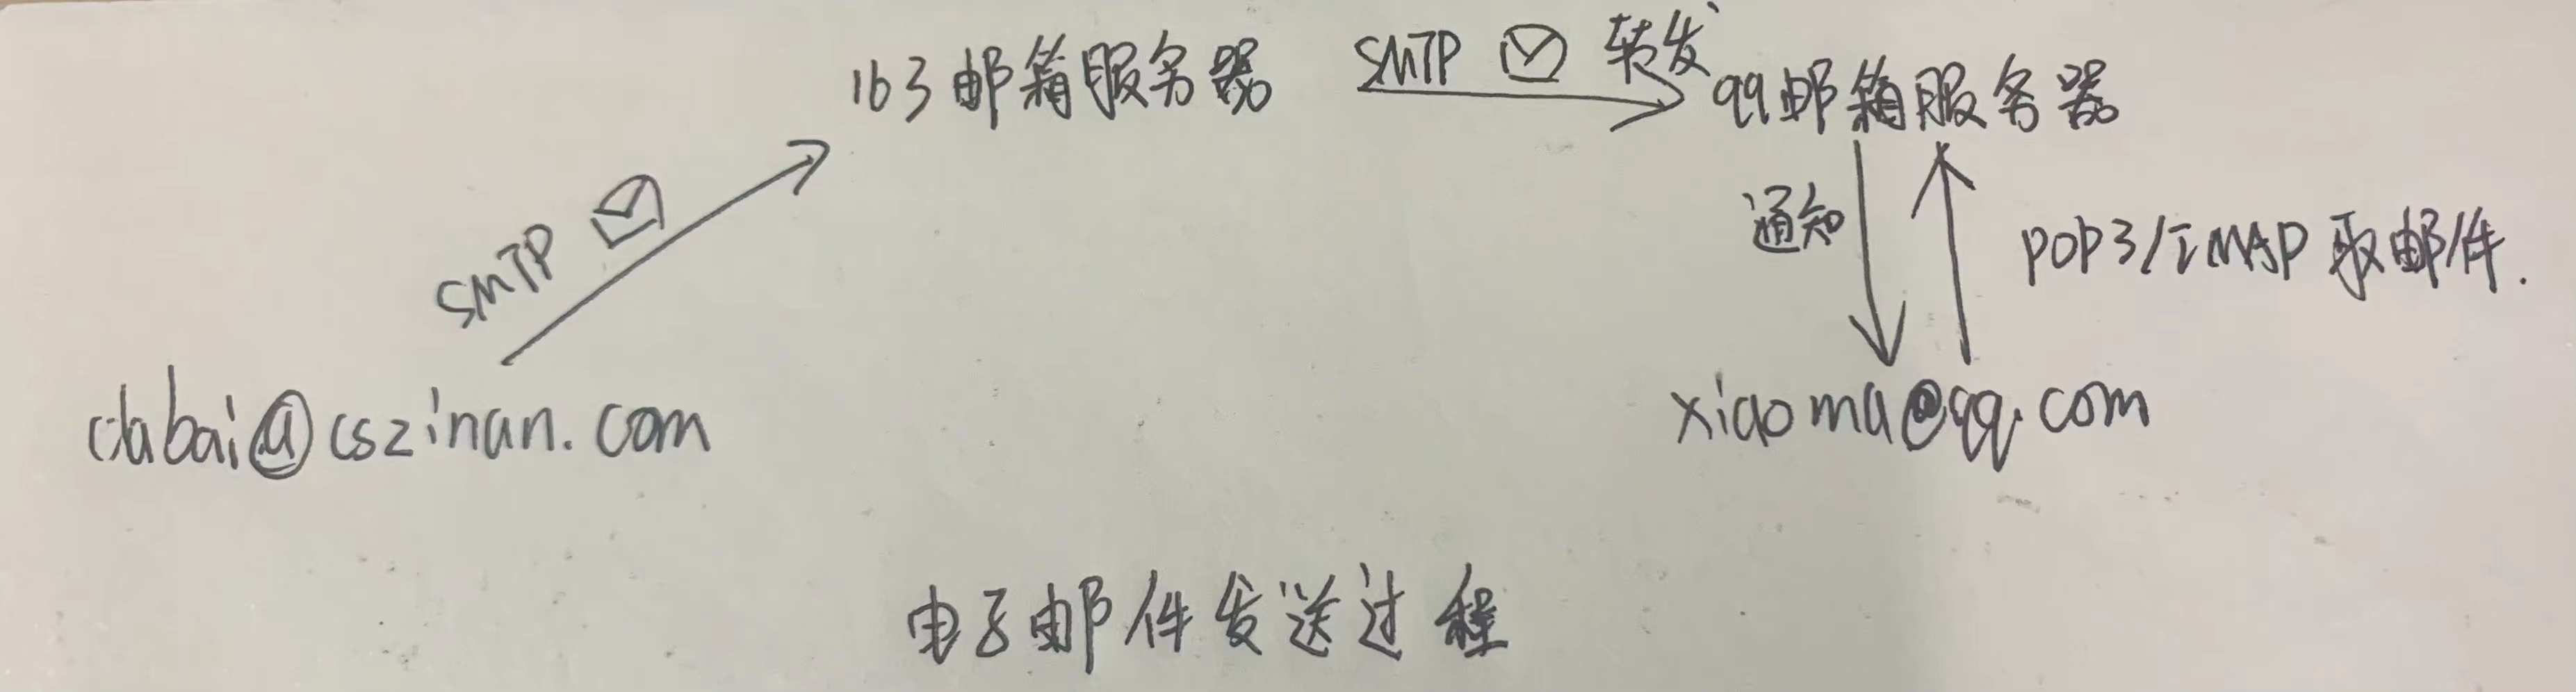 163邮箱服务器
SMTP 转发
qq邮箱服务器
SMTP
通知
POP3/IMAP 取邮件.
dabai@cszinan.com
xiaoma@qq.com
电子邮件发送过程